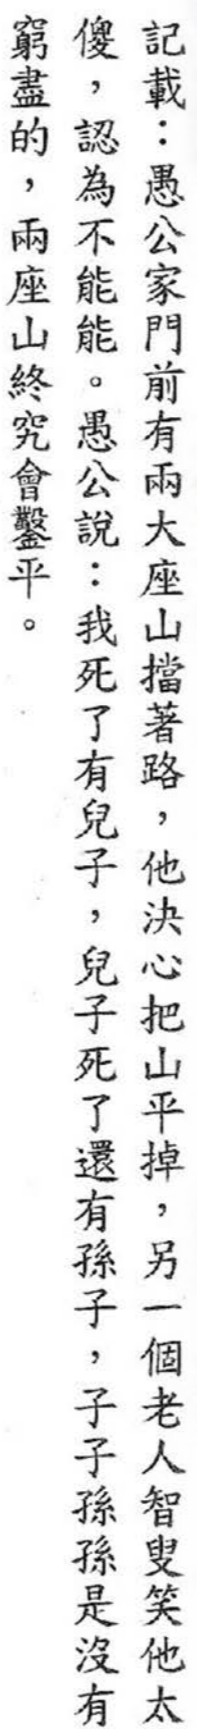 記載：愚公家門前有兩大座山擋著路，他決心把山平掉，另一個老人智叟笑他太
傻，認為不能能。愚公說：我死了有兒子，兒子死了還有孫子，子子孫孫是沒有
窮盡的，兩座山終究會鑿平。